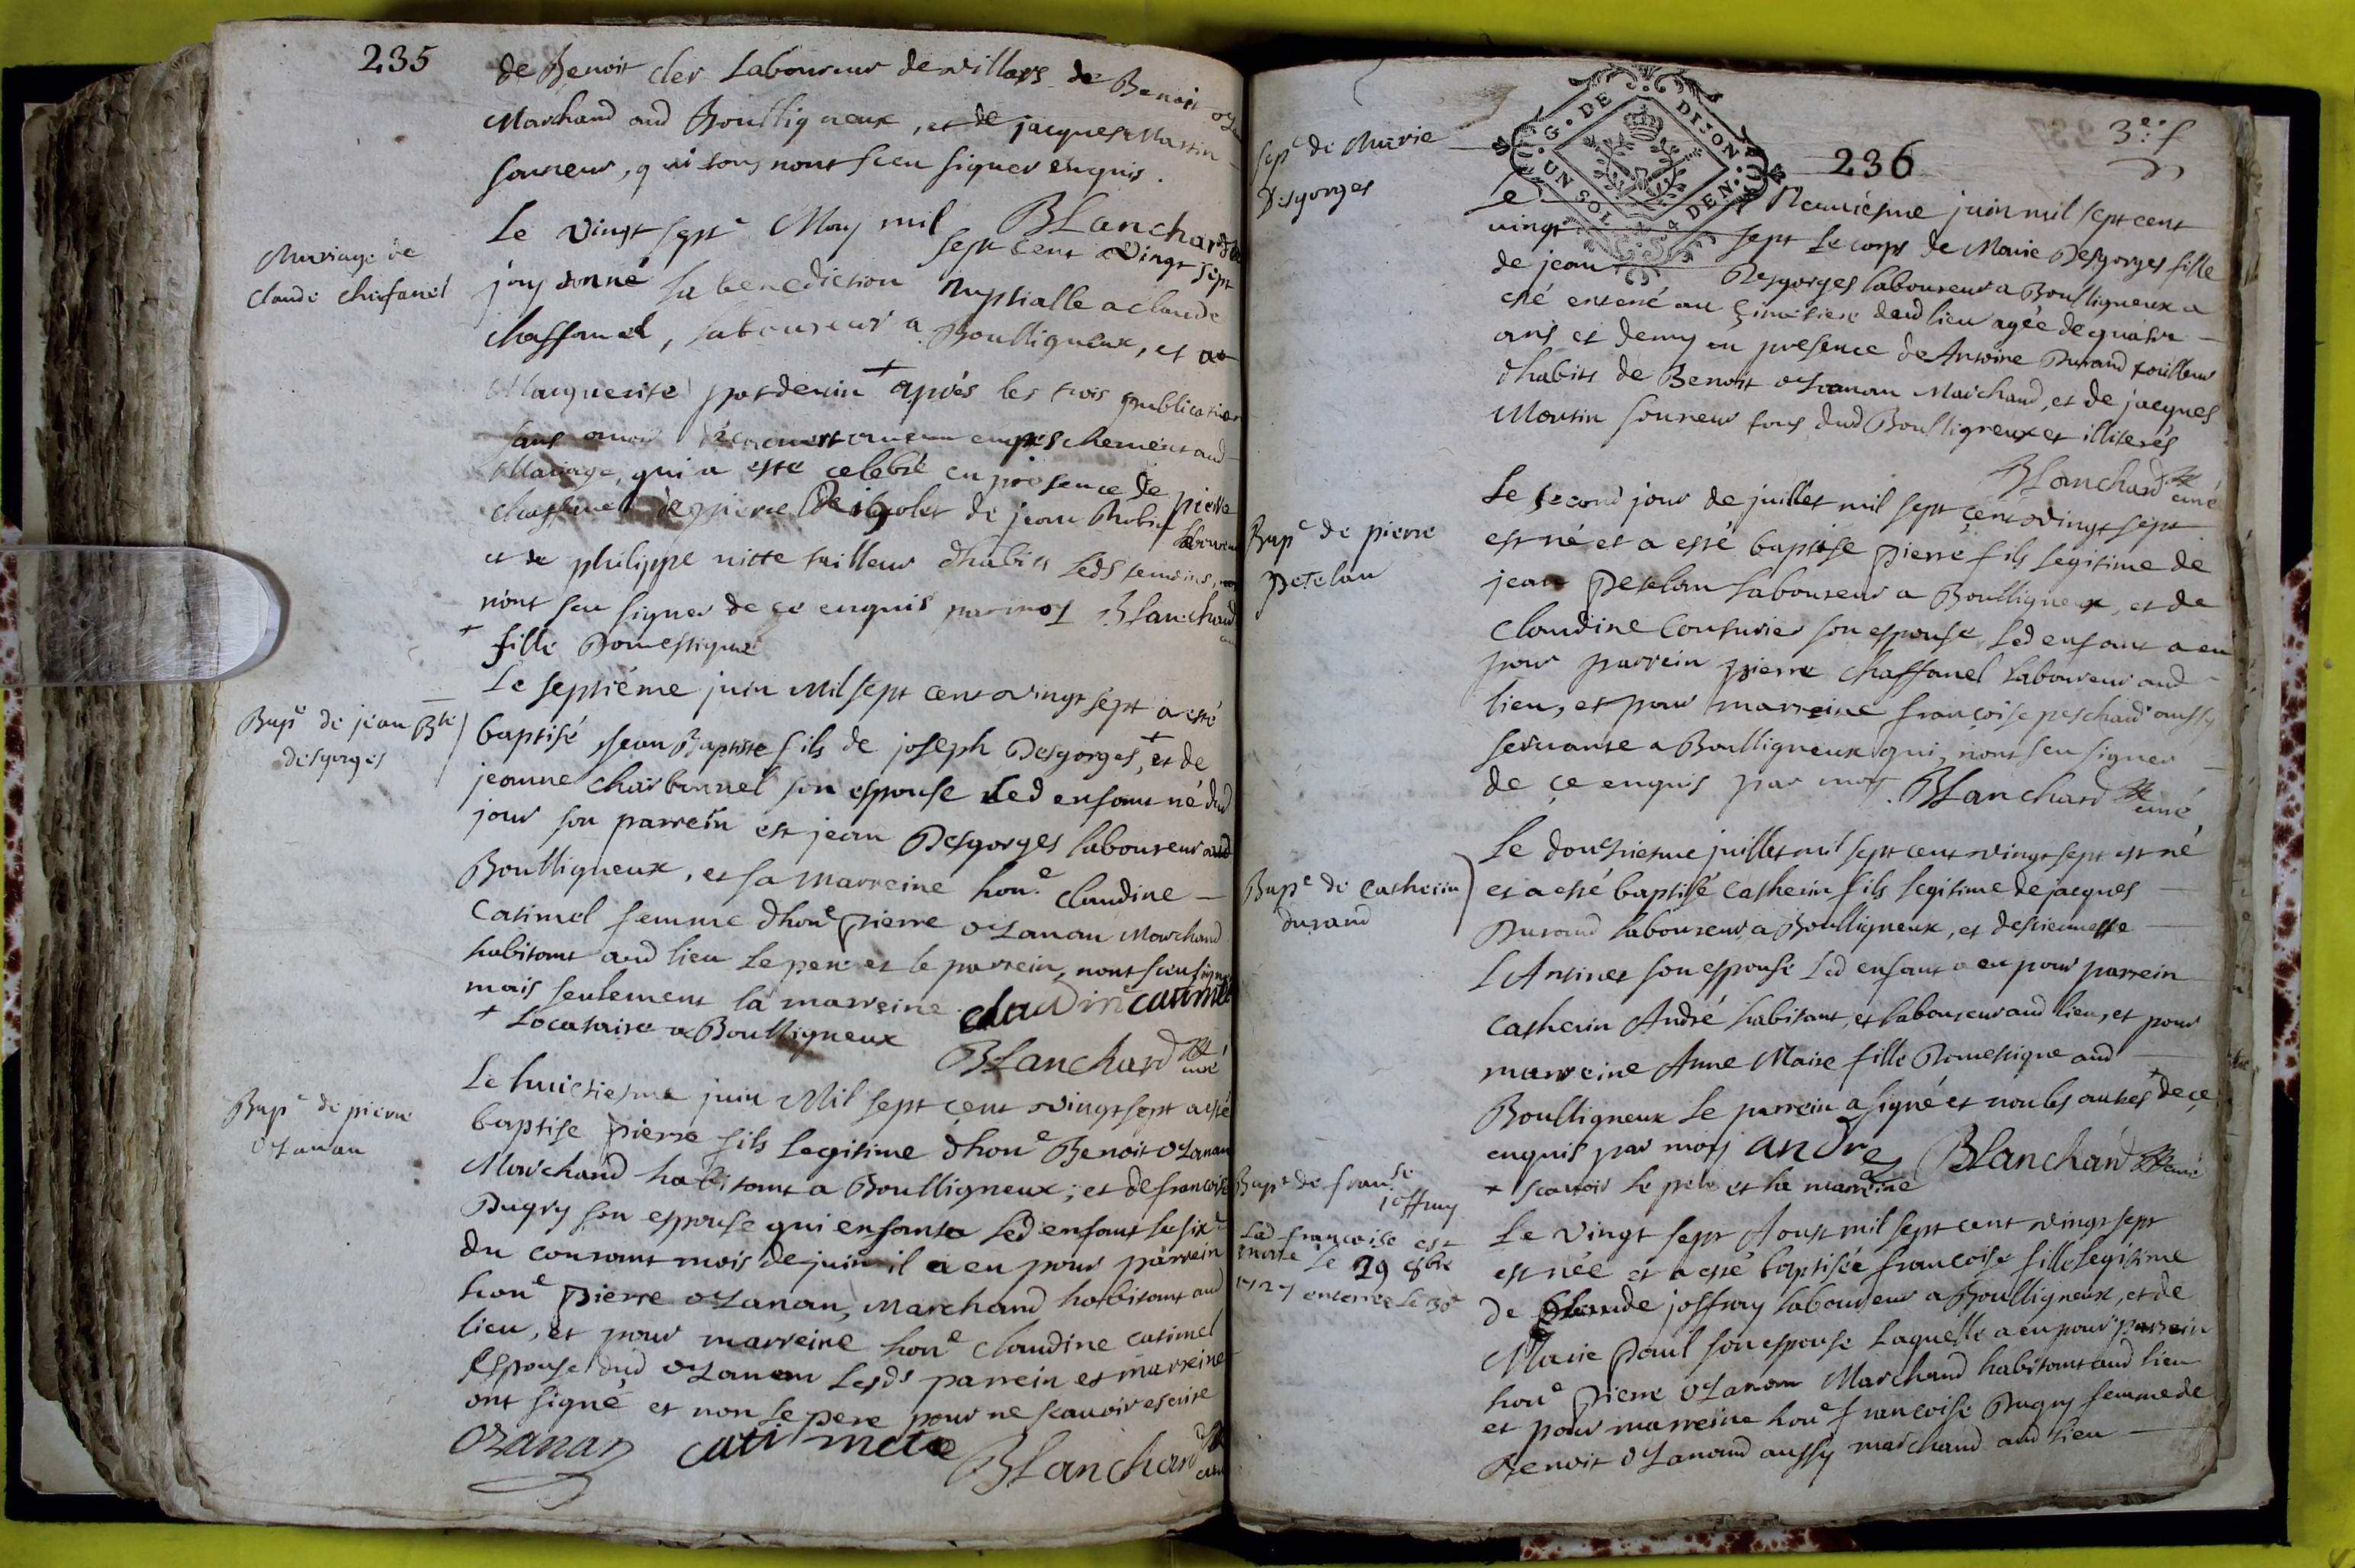 235
de Benoit cler Laboureur de villars de Benoit oza
Marchand aud Boulligneux, et de jacques Martin
sonneur, qui tous nont sceu signer enquis.
Blanchard
Mariage de
Claude Chaffanel
Le vingt sept May mil sept cent vingt sept
j'ay donné la benediction nuptialle a claude
chaffanel, laboureur a Boulligneux, et a
Marguerite + après les trois publications
sans avoir decouvert aucun empeschement aud
Mariage, qui a este celebré en presence de pierre
chaffanel de pierre de jean laboureur
et de philippe nitte tailleur dhabits Leds temoins
n'ont sceu signer de ce enquis par moy Blanchard
+ fille Domestique
Bapᵉ de jean Bte
desgorges
Le septiéme juin Mil sept cent vingt sept a esté
baptisé jean Baptiste fils de joseph Desgorges+, et de
jeanne Charbonnel son espouse Led enfant né dud
jour son parrein est jean Desgorges laboureur aud
Boulligneux, et sa marreine honᵉ claudine
Catimel femme dhonᵉ pierre ozanan Marchand
habitant aud lieu Le pere et le parrein, nont sceu signer
mais seulement la marreine claudin catimel
+ Locataire a Boulligneux Blanchard curé
Bapᵉ de pierre
ozanan
Le huictiesme juin Mil sept cent vingt sept a esté
baptise pierre fils Legitime dhonᵉ Benoit ozanan
Marchand habitant a Boulligneux; et de francoise
Dugry son espouse qui enfanta Led enfant le sixᵉ
du courant mois de juin il a eu pour parrein
honᵉ pierre ozanan, Marchand habitant aud
lieu, et pour marreine honᵉ Claudine catimel
Espouse dud ozanan Lesds parrein et marreine
ont signé et non le pere pour ne scauoir escrire
ozanan catimelle Blanchard curé
3e. f
236
G. DE DIJON
UN SOL 4 DEN.
Sepᵉ de Marie
Desgorges
Le Neuviesme juin mil sept cent
vingt sept Le corps de Marie Desgorges fille
de jean Desgorges laboureur a Boulligneux a
esté enterré au Çimetiere dud lieu agée de quatre
ans et demy en presence de Antoine Durand tailleur
dhabits de Benoit ozanan Marchand, et de jacques
Martin sonneur tous dud Boulligneux et illiterés
Blanchard curé
Bapᵉ de pierre
petelan
Le second jour de juillet mil sept çent vingt sept
est né et a esté baptise pierre fils legitime de
jean Petelan laboureur a Boulligneux, et de
Claudine Couturier son espouse, Led enfant a eu
pour parrein pierre Chaffanel laboureur aud
lieu, et pour marreine françoise peschard aussy
servante a Boulligneux qui, nont sceu signer
de çe enquis par moy. Blanchard curé
Bapᵉ de Catherin
durand
Le douziesme juillet mil sept cent vingt sept est né
et a esté baptisé Catherin fils legitime de jacques
Durand laboureur a Boulligneux, et destiennette
L'Antinet son espouse Led enfant a eu pour parrein
Catherin André habitant, et laboureur aud lieu, et pour
marreine Anne Maire fille Domestique aud
Boulligneux Le parrein a signé et non les autres+ de çe
enquis par moy andre Blanchard curé
+ scavoir le pere et la marreine
Bapᵉ de franse
joffray
Lad francoise est
morte le 29 8bre
1727 enterrée le 30e
Le vingt sept Aoust mil sept cent vingt sept
est née et a esté baptisée francoise fille legitime
de Claude joffray laboureur a Boulligneux, et de
Marie paul son espouse Laquelle a eu pour parrein
honᵉ pierre ozanan Marchand habitant aud lieu
et pour marreine honᵉ francoise Dugry femme de
Benoit ozanand aussy marchand aud lieu